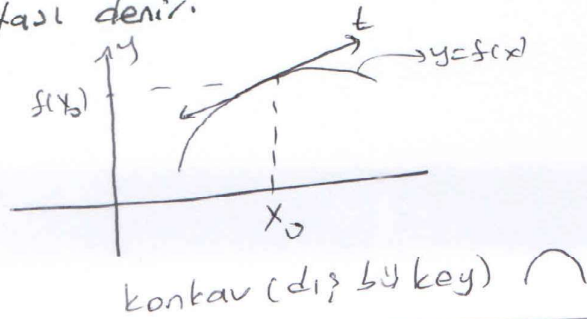 tası denir.
y
t
y=f(x)
f(x₀)
x₀
konkav (dış bükey)